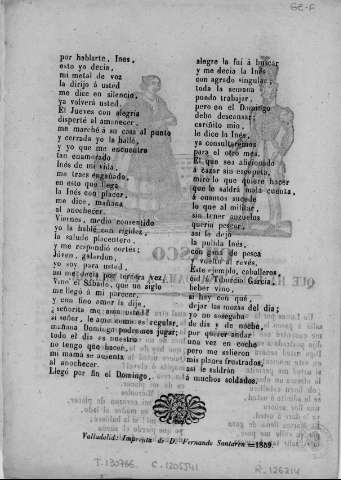 GE-F
por hablarte, Ines,
esto yo decia,
mi metal de voz
la dirijo á usted
me dice en silencio,
ya volverá usted.
El Jueves con alegria
disperté al amanecer,
me marché á su casa al punto
y cerrada yo la hallé,
y yo que me encuentro
tan enamorado
Inés de mi vida,
me traes engañado,
en esto que llega
la Inés con placer,
me dice, mañana
al anochecer.
Viernes, medio consentido
yo la hablé con rigidez,
la saludé placentero,
y me respondió cortés;
Jóven, galardon,
yo soy para usted,
asi me decia por tercera vez,
Vino el Sábado, que un siglo
me llegó á mi parecer,
y con fino amor la dije,
¿señorita me ama usted?
¿señor, le amo como es regular,
mañana Domingo podremos jugar;
todo el dia es nuestro
no tengo que hacer,
mi mamá se ausenta
al anochecer.
Llegó por fin el Domingo,
alegre la fuí á buscar
y me decia la Inés
con agrado singular;
toda la semana
puedo trabajar,
pero en el Domingo
debo descansar;
cariñito mio,
le dice la Inés,
ya consultaremos
para el otro mes.
El que sea aficionado
á cazar sin escopeta,
mire lo que quiere hacer
que le saldrá mala cuenta,
á cuantos sucede
lo que al militar,
sin tener anzuelos
queria pescar,
asi le dejó
la pulida Inés,
con cañá de pesca
y vuelta al revés.
Este ejemplo, caballeros,
el Tiburcio Garcia,
beber vino,
si hay con qué,
dejar las mozas del dia;
yo no sosegaba
de dia y de noche,
por querer andar
una vez en coche
pero me salieron
mis planes frustrados,
asi le saldrán
á muchos soldados.
Valladolid: Imprenta de D. Fernando Santarén.—1859.
T.130766 C.1205341 R.126214